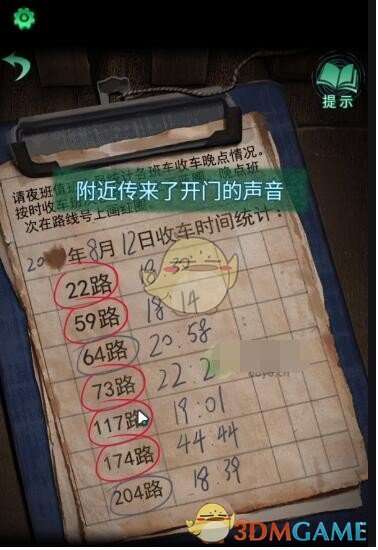 提示
请夜班值
统计各班车收车晚点情况。
按时收车
晚点班
次在路线号上画红圈
附近传来了开门的声音
年8月12日收车时间统计：
22路 18
59路 18:14
64路 20:58
73路 22:2
117路 19:01
174路 44:44
204路 18:39
3DMGAME